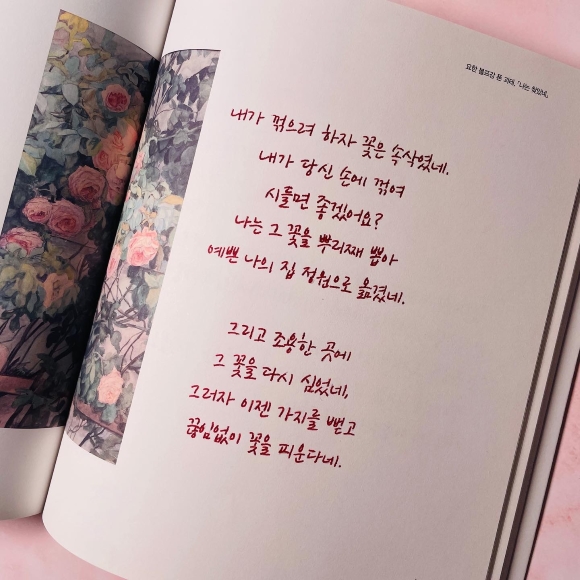 요한 볼프강 폰 괴테, 「나는 찾았네」
내가 꺾으려 하자 꽃은 속삭였네.
내가 당신 손에 꺾여
시들면 좋겠어요?
나는 그 꽃을 뿌리째 뽑아
예쁜 나의 집 정원으로 옮겼네.
그리고 조용한 곳에
그 꽃을 다시 심었네,
그러자 이젠 가지를 뻗고
끊임없이 꽃을 피운다네.